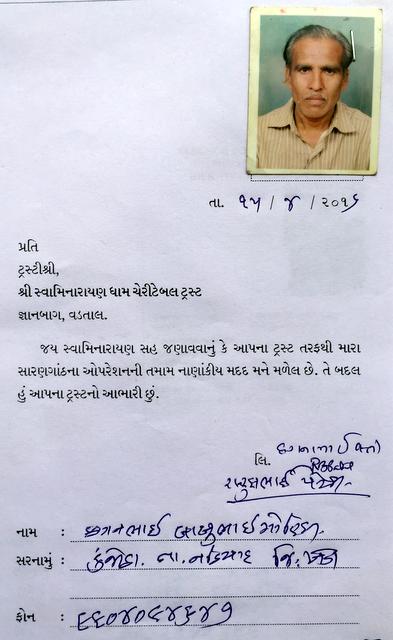 તા. ૧૫ / ૪ / ૨૦૧૬
પ્રતિ
ટ્રસ્ટીશ્રી,
શ્રી સ્વામિનારાયણ ધામ ચેરીટેબલ ટ્રસ્ટ
જ્ઞાનબાગ, વડતાલ.
જય સ્વામિનારાયણ સહ જણાવવાનું કે આપના ટ્રસ્ટ તરફથી મારા
સારણગાંઠના ઓપરેશનની તમામ નાણાંકીય મદદ મને મળેલ છે. તે બદલ
હું આપના ટ્રસ્ટનો આભારી છું.
લિ.
નામ : છગનભાઈ
સરનામું : તા. નડિયાદ જિ. ખેડા
ફોન :